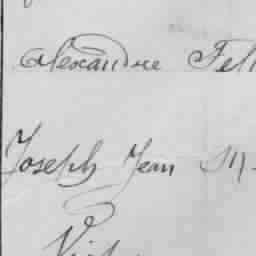 Alexandre Fel
Joseph Jean M
Vict